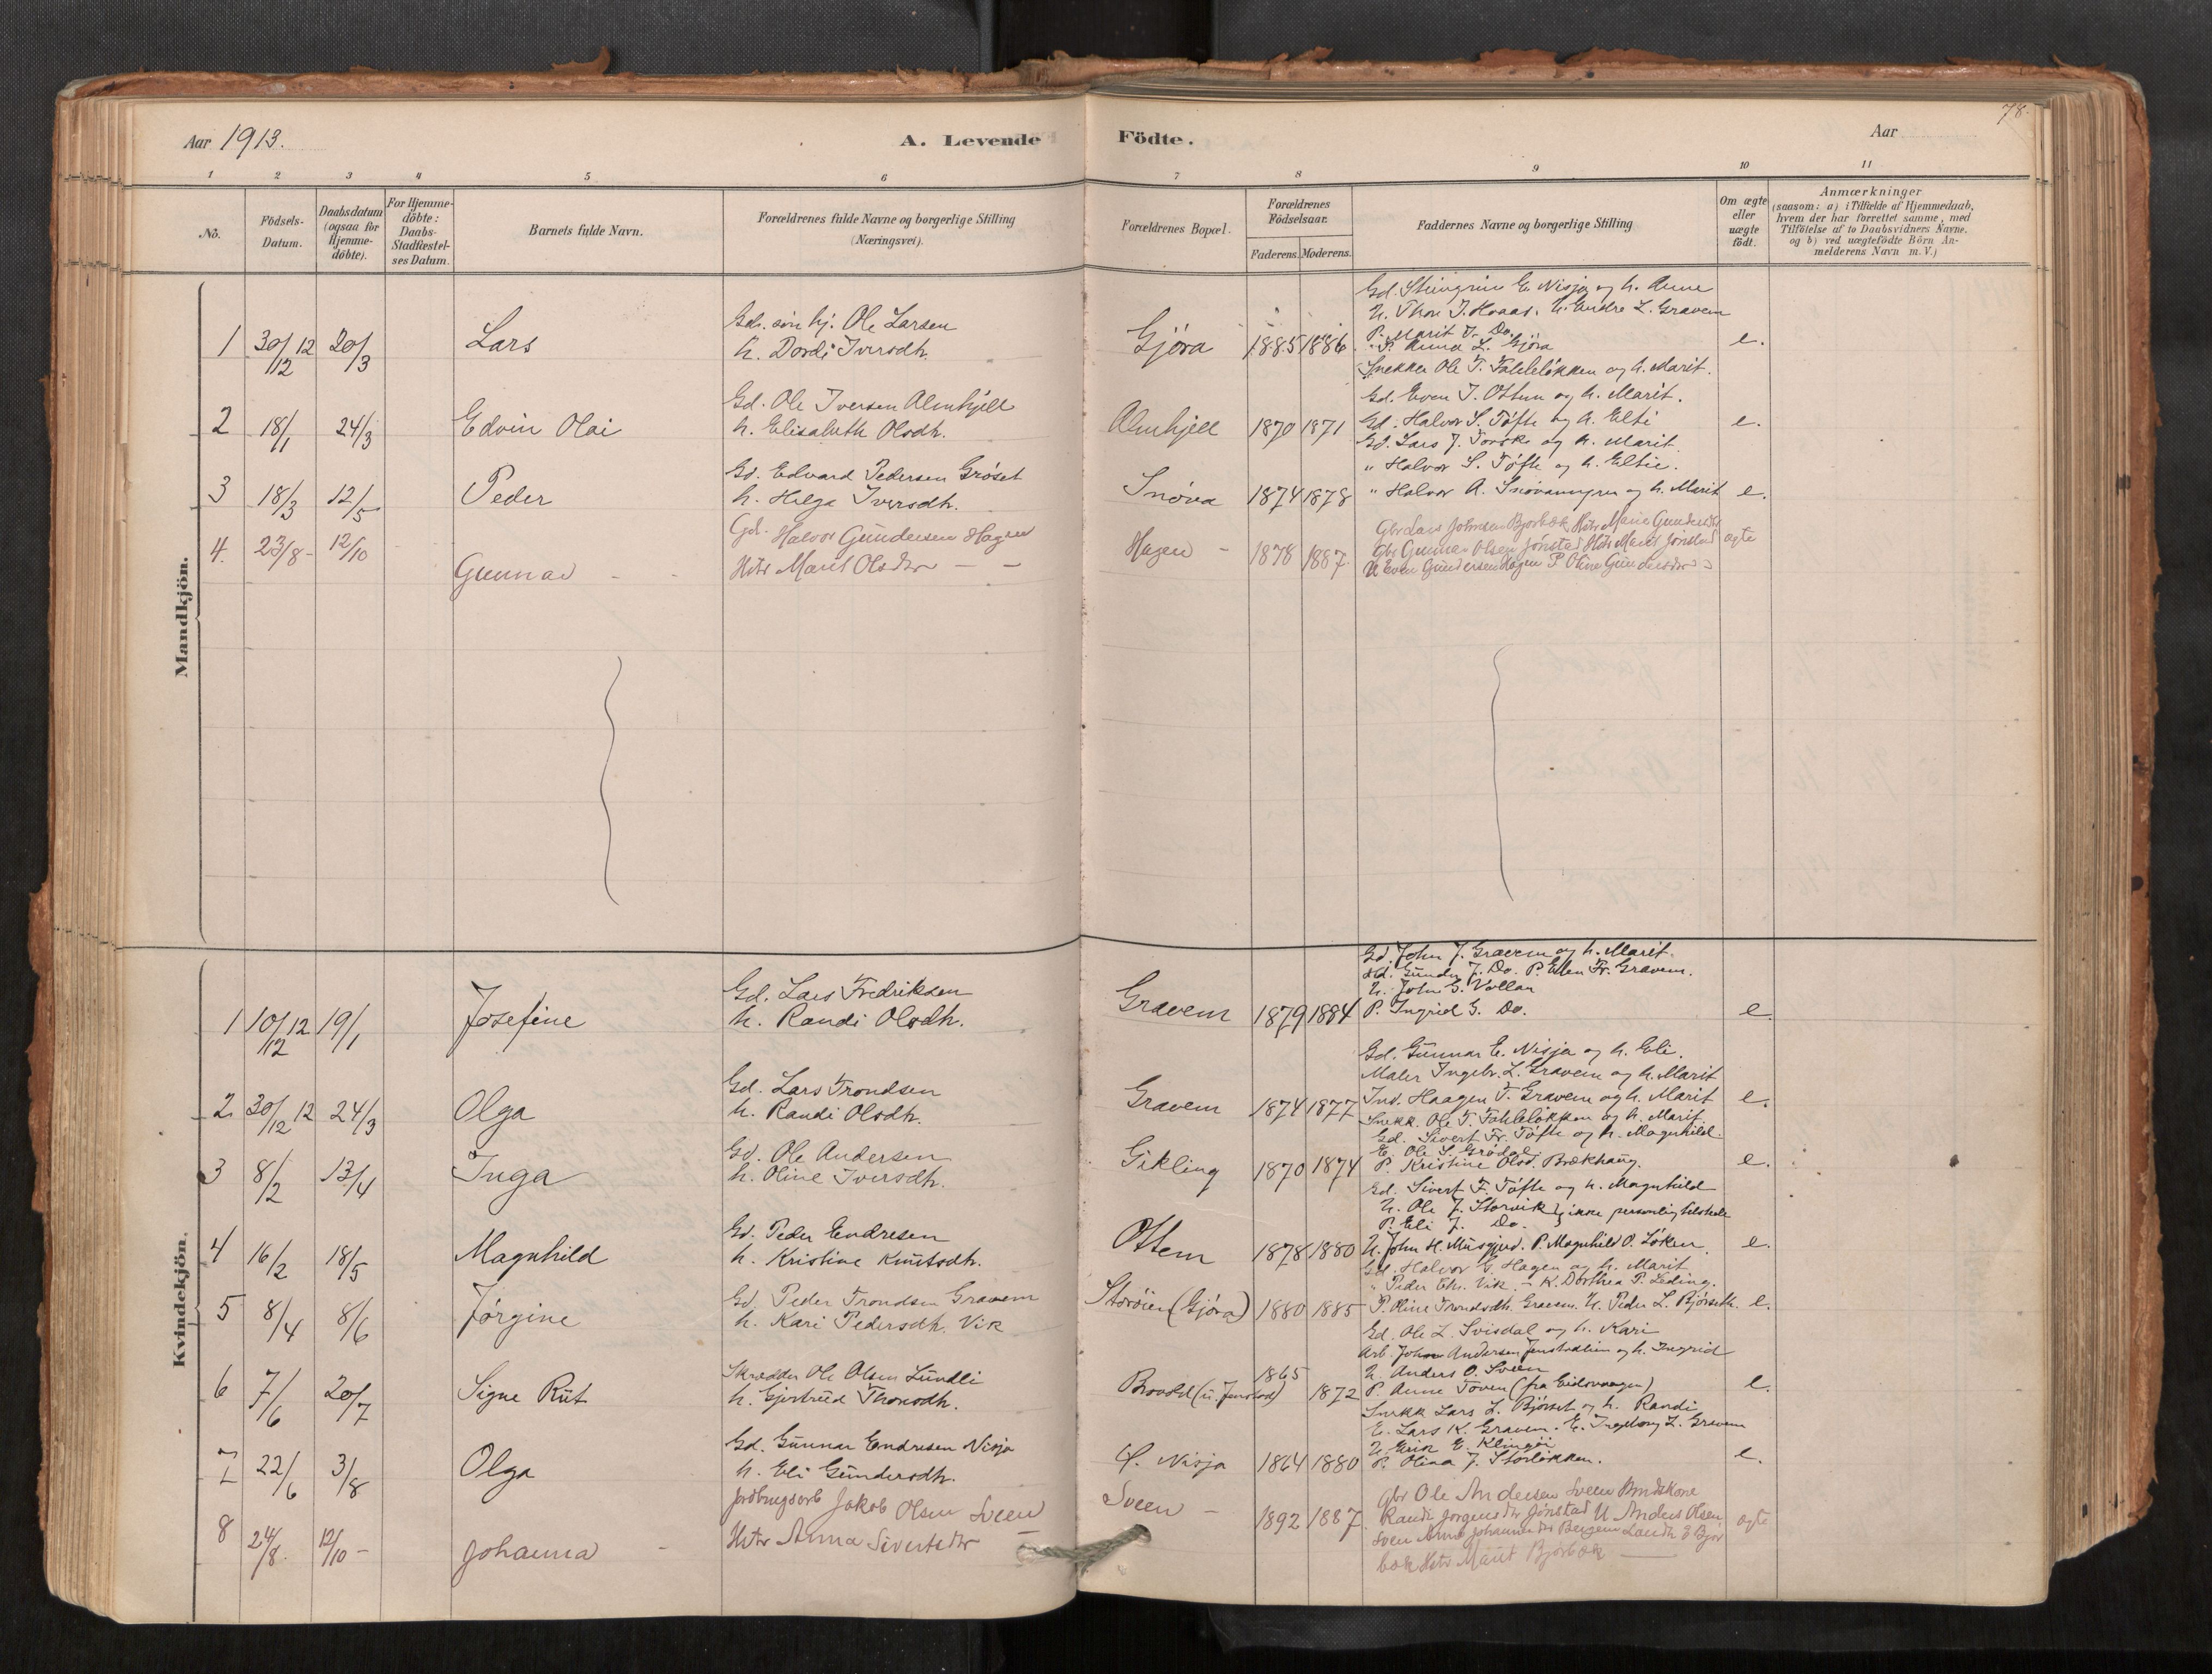 78.
Aar 1913.
A. Levende Födte.
Aar
1 2 3 4 5 6 7 8 9 10 11
No.
Födsels-Datum.
Daabsdatum (ogsaa for Hjemme-döbte).
For Hjemme-döbte: Daabs-Stadfæstel-ses Datum.
Barnets fulde Navn.
Forældrenes fulde Navne og borgerlige Stilling (Næringsvei).
Forældrenes Bopæl.
Forældrenes Födselsaar.
Faderens. Moderens.
Faddernes Navne og borgerlige Stilling
Om ægte eller uægte födt.
Anmærkninger (saasom: a) i Tilfælde af Hjemmedaab, hvem der har forrettet samme, med Tilföielse af to Daabsvidners Navne. og b) ved uægtefödte Börn An-melderens Navn m.V.)
Mandkjön.
1 30/12 12 20/3 Lars
Gds. søn hj. Ole Larsen
h. Dordi Iversdh.
Gjöra 1885 1886 e.
Gd. Steingrim E. Nisja og h. Anne
U. Thore J. Hoaas. U. Endre L. Gravem
P. Marit J. Do.
P. Anna L. Gjöra
Snekker Ole T. Fahleløkken og h. Marit.
2 18/1 24/3 Edvin Olai
Gd. Ole Iversen Almhjell
h. Elisabeth Olsdh.
Almhjell 1870 1871 e.
Gd. Even J. Ottem og h. Marit.
Gd. Halvor S. Tøfte og h. Elti
Gd. Lars J. Torske og h. Marit
3 18/3 12/5 Peder
Gd. Edvard Pedersen Grøset
h. Helga Iversdh.
Snöva 1874 1878 e.
" Halvor S. Tøfte og h. Eltie.
" Halvor A. Snøvamyren og h. Marit
4. 23/8 - 12/10 Gunnar - -
Gd. Halvor Gundersen Hagen
Hstr Marit Olsdtr - -
Hagen - 1878 1887. ægte
Gbr Lars Johnsen Bjorbæk Hstr Marie Gundersdtr
Gbr Gunnar Olsen Jönstad Hstr Marit Jonstad
U Even Gundersen Hagen P Oline Gundersdtr
Kvindekjön.
1 10/12 12 19/1 Josefine
Gd. Lars Fredriksen
h. Randi Olsdh.
Gravem 1879 1884 e.
Gd. John J. Gravem og h. Marit.
Gd. Gunder J. Do. P. Ellen Fr. Gravem.
U. John G. Vollan
P. Ingrid G. Do.
2. 30/12 12 24/3 Olga
Gd. Lars Trondsen
h. Randi Olsdh.
Gravem 1874 1877 e.
Gd. Gunnar E. Nisja og h. Eli.
Maler Ingebr. L. Gravem og h. Marit
Ind. Haagen T. Gravem og h. Marit
Snekk. Ole T. Fahleløkken og h. Marit
3 8/2 13/4 Inga
Gd. Ole Andersen
h. Oline Iversdh.
Gikling 1870 1874 e.
Gd. Sivert Fr. Tøfte og h. Magnhild.
E. Ole S. Grødal
P. Kristine Olsd. Brækhaug.
4 16/2 18/5 Magnhild
Gd. Peder Endresen
h. Kristine Knutsdh.
Ottem 1878 1880 e.
Gd. Sivert F. Tøfte og h. Magnhild
U. Ole J. Storvik } ikke personlig tilstede
P. Eli J. Do.
U. John H. Musgjerd. P. Magnhild O. Løken.
5 8/4 8/6 Jørgine
Gd Peder Trondsen Gravem
h. Kari Pedersdh. Vik
Storøien (Gjöra) 1880 1885 e.
Gd. Halvor G. Hagen og h. Marit
" Peder Ek. Vik. - K. Dorthea P. Leding.
P. Oline Trondsdh. Gravem. U. Peder L. Bjørseth.
6 7/6 20/7 Signe Rut
Skrædder Ole Olsen Lundli
h. Gjertrud Thorsdh.
Brovold (u. Jenstad) 1865 1872 e.
Gd. Ole L. Svisdal og h. Kari
Arb. John Andersen Jenstadlien og h. Ingrid
U. Anders O. Sveen
P. Anne Toven (fra Eidsvaagen)
7 22/6 3/8 Olga
Gd. Gunnar Endresen Nisja
h. Eli Gundersdh.
Y. Nisja 1864 1880 e.
Snekk Lars L. Bjørset og h. Randi
E. Lars K. Gravem. E. Ingeborg L. Gravem
U. Erik E. Klingøi
P. Olina J. Storløkken.
8 24/8. 12/10 - Johanna -
Jordbrugsarb Jakob Olsen Sveen
Hstr Anna Sivertsdtr -
Sveen - 1892 1887. ægte
Gbr Ole Andersen Sveen Bondekone
Randi Jorgensdtr Jönstad U Anders Olsen
Sveen Anne Johannesdtr Bergem Landh E Bjor
bæk Hstr Marit Bjorbæk